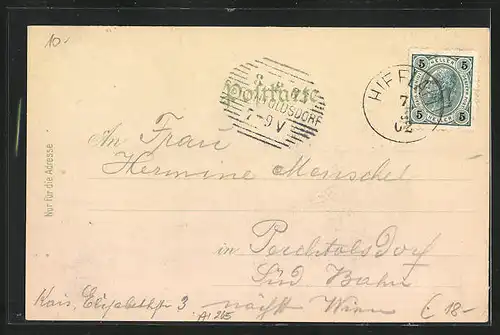 10.-
Postkarte
HIEFL
5 HELLER 5
7
02
8
TOLDSDORF
7-9 V
Nur für die Adresse
An Frau
Hermine Menschel
in Perchtolsdorf
Süd Bahn
Kais. Elisabethstr 3 nächst Wien
A1215
18-